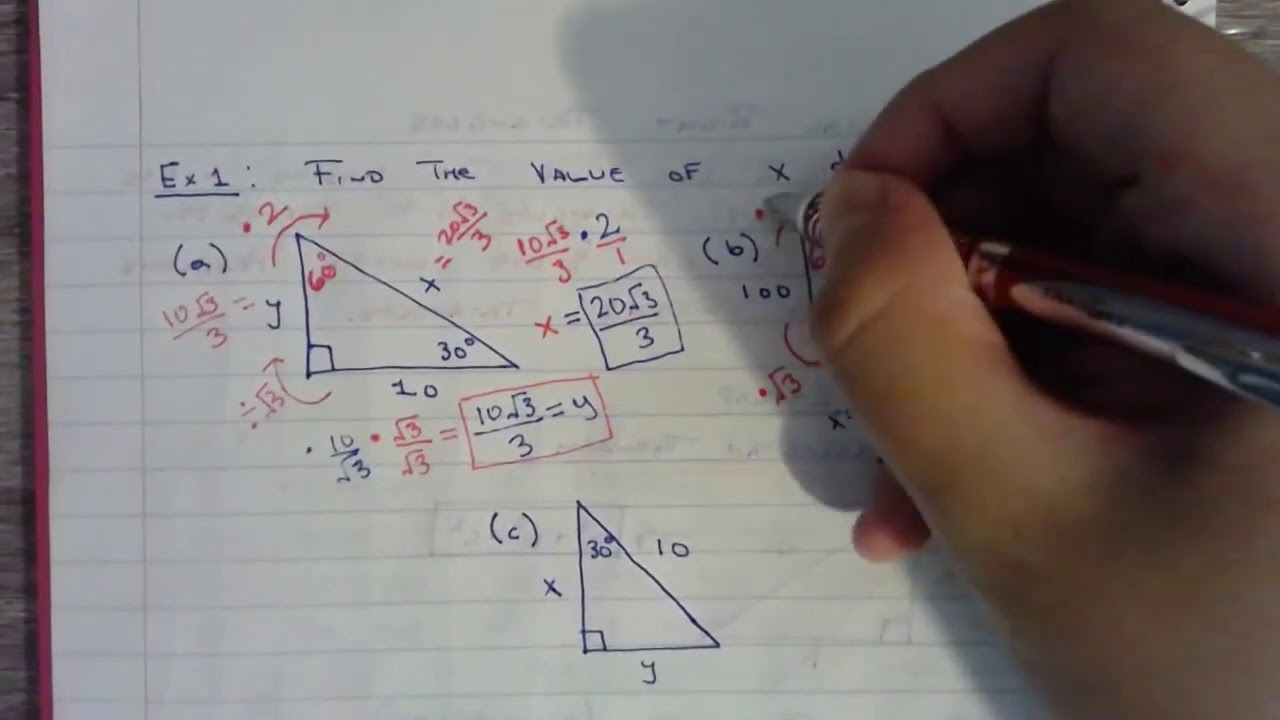 Ex 1: FIND THE VALUE OF x
(a)
• 2
60°
10√3/3 = y
x = 20√3/3
30°
10
÷√3
10√3/3 • 2/1
x = 20√3/3
• 10/√3 • √3/√3 = 10√3/3 = y
(b)
100
•√3
(c)
30°
10
x
y